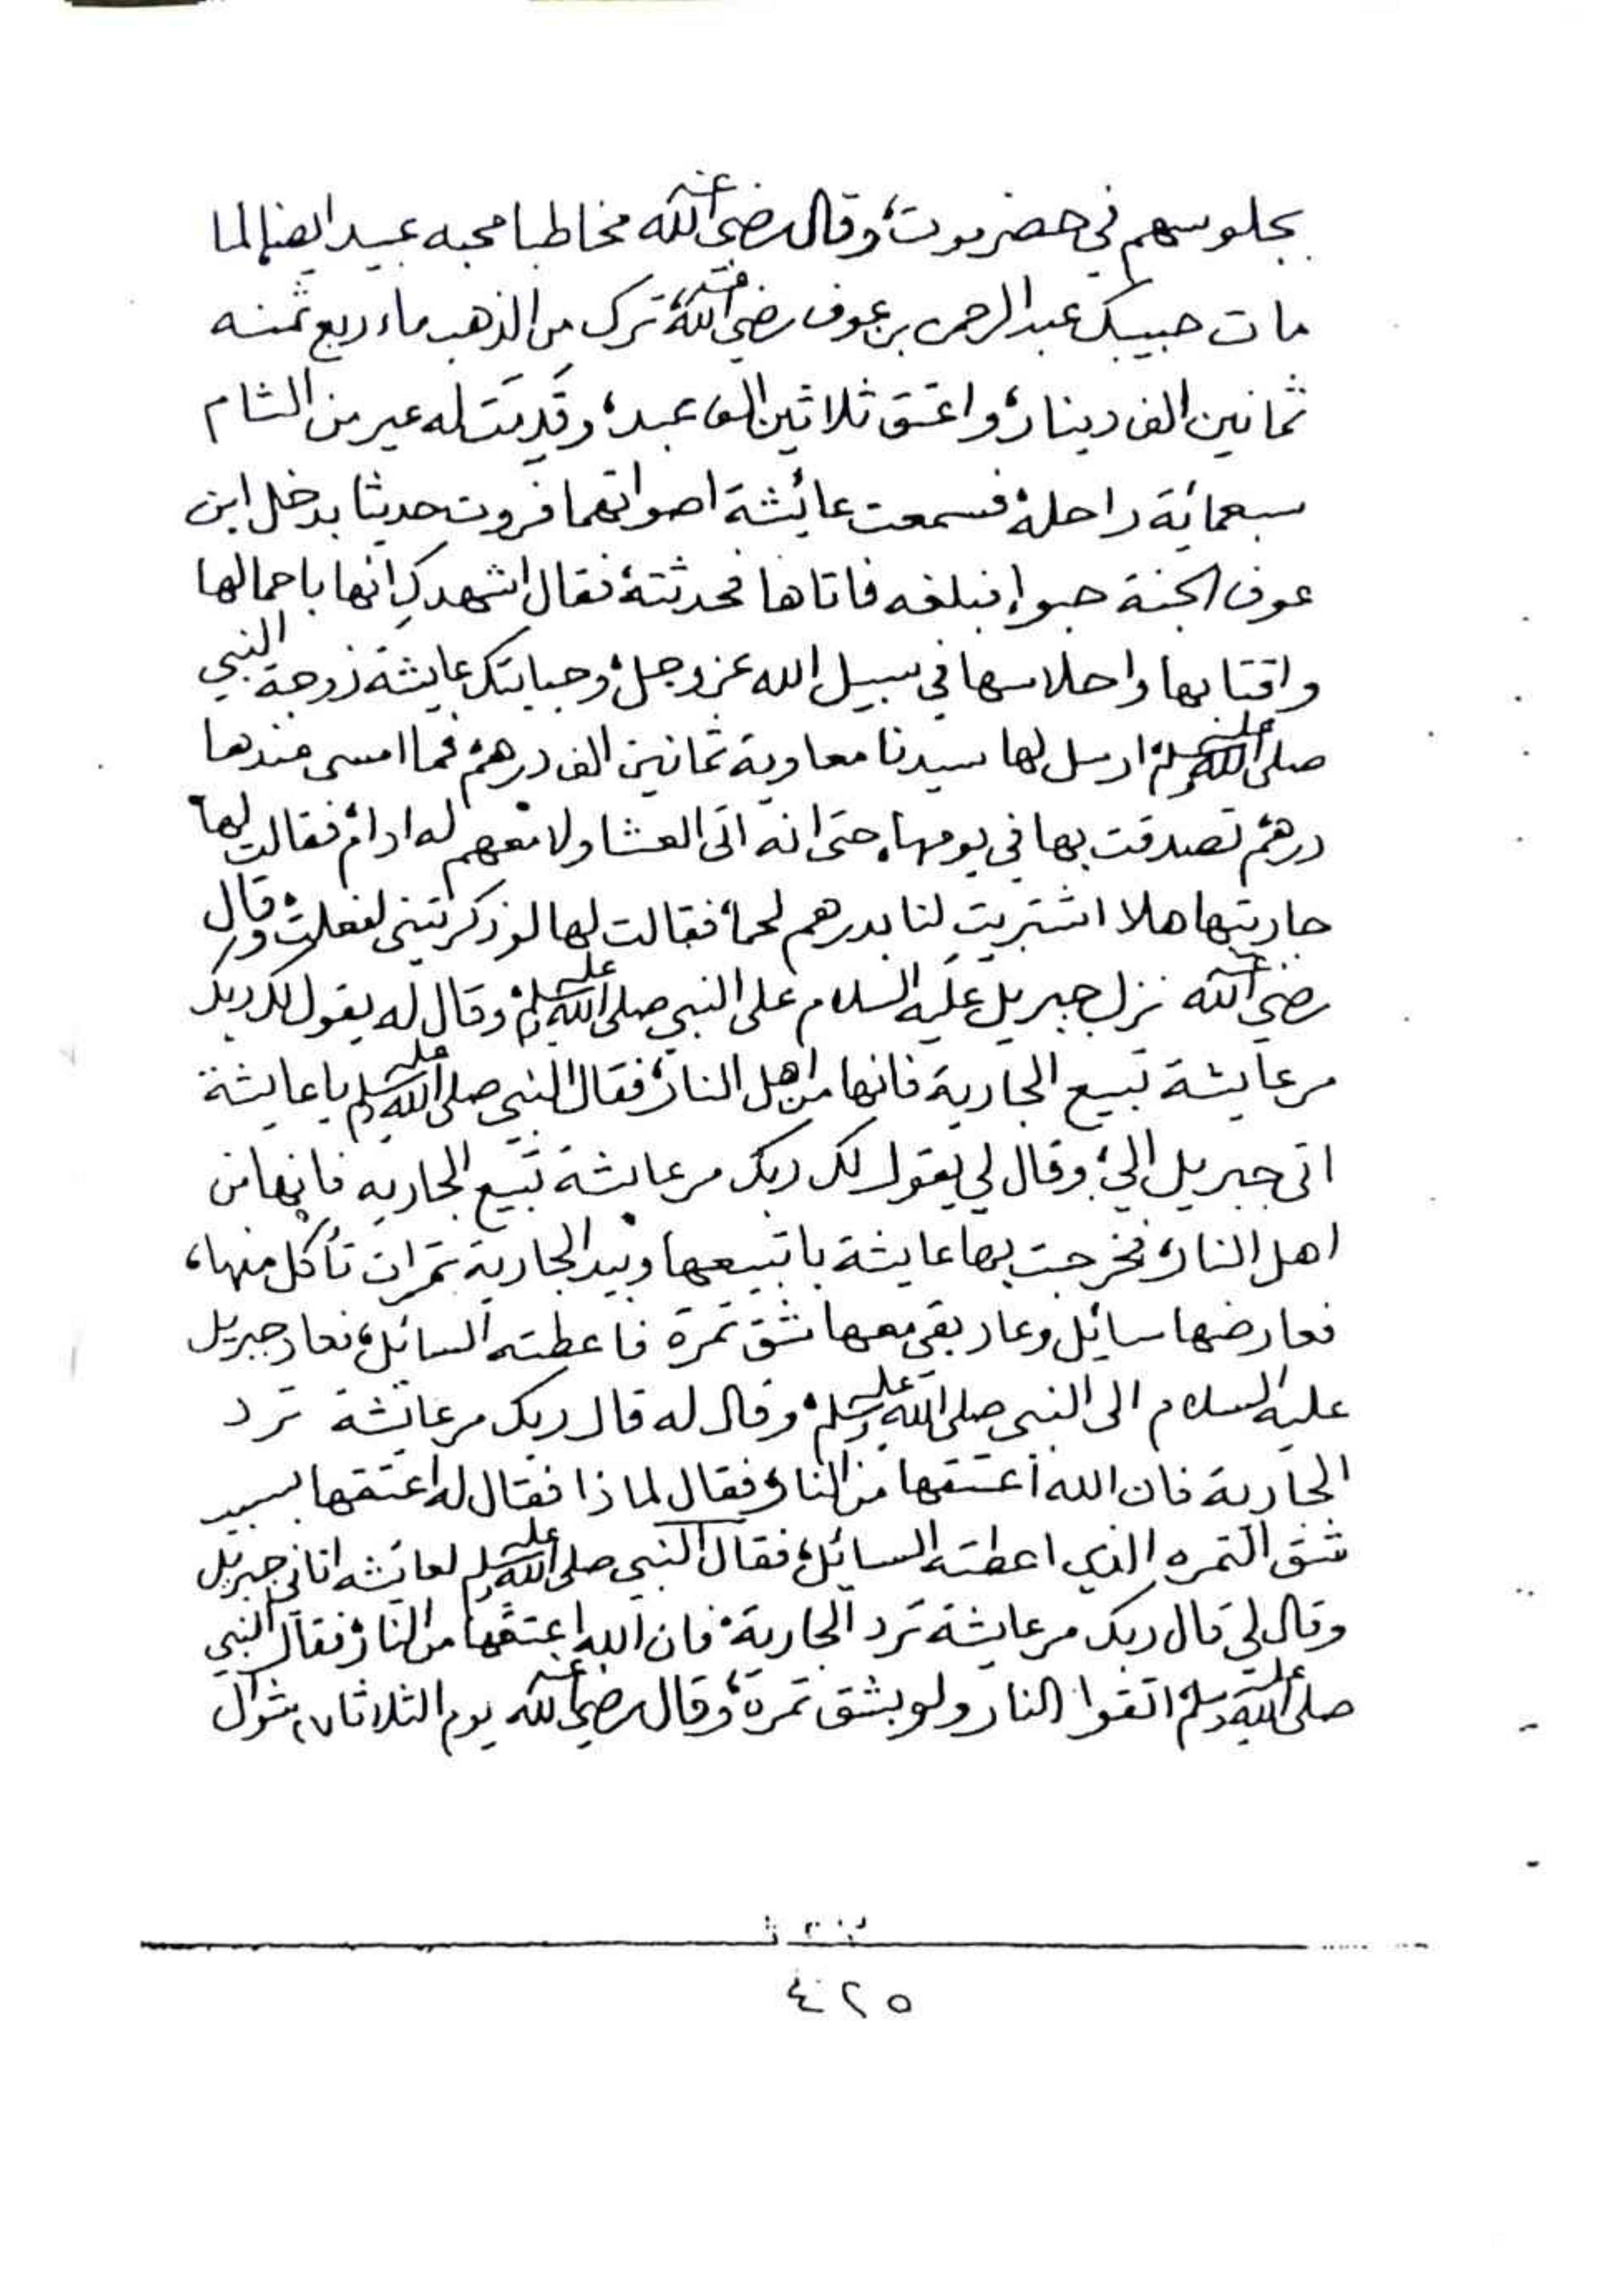 بجلوسهم في حضرموت، وقال رضي الله عنه مخاطبا محبه عبيد ايضا لما
مات حبيبك عبد الرحمن بن عوف رضي الله عنه ترك من الذهب ماء ربع ثمنه
ثمانين الف دينار، واعتق ثلاثين الف عبد، وقدِمَت له عير من الشام
سبعمائة راحلة، فسمعت عائشة اصواتهما فروت حديثا يدخل ابن
عوف الجنة حبوا، فبلغه فاتاها فحدثته، فقال اشهدكِ انها باحمالها
واقتابها واحلاسها في سبيل الله عز وجل، وحبابتك عايشة زوجة النبي
صلى الله عليه وسلم، ارسل لها سيدنا معاوية ثمانين الف درهم، فما امسى عندها
درهم، تصدقت بها في يومها، حتى انه اتى العشا ولا معهم له ادام، فقالت لها
جاريتها هلا اشتريتِ لنا بدرهم لحما، فقالت لها لو ذكرتيني لفعلت، وقال
رضي الله عنه نزل جبريل عليه السلام على النبي صلى الله عليه وسلم، وقال له يقول لك ربك
مر عايشة تبيع الجارية فانها من اهل النار، فقال النبي صلى الله عليه وسلم يا عايشة
اتى جبريل اليّ، وقال لي يقول لك ربك مر عايشة تبيع الجاريه فانها من
اهل النار، فخرجت بها عايشة باتبيعها وبيد الجارية تمرات تأكل منها،
فعارضها سايئل وعاد بقي معها شق تمرة فاعطته السائل، فعاد جبريل
عليه السلام الى النبي صلى الله عليه وسلم، وقال له قال ربك مر عائشة ترد
الجارية فان الله أعتقها من النار، فقال لماذا فقال له اعتقها بسبب
شق التمره الذي اعطته السائل، فقال النبي صلى الله عليه وسلم لعائشه اتاني جبريل
وقال لي قال ربك مر عايشة ترد الجارية، فان الله اعتقها من النار، فقال النبي
صلى الله عليه وسلم، اتقوا النار ولو بشق تمرة، وقال رضي الله عنه يوم الثلاثا ٧ شوال
٤٢٥